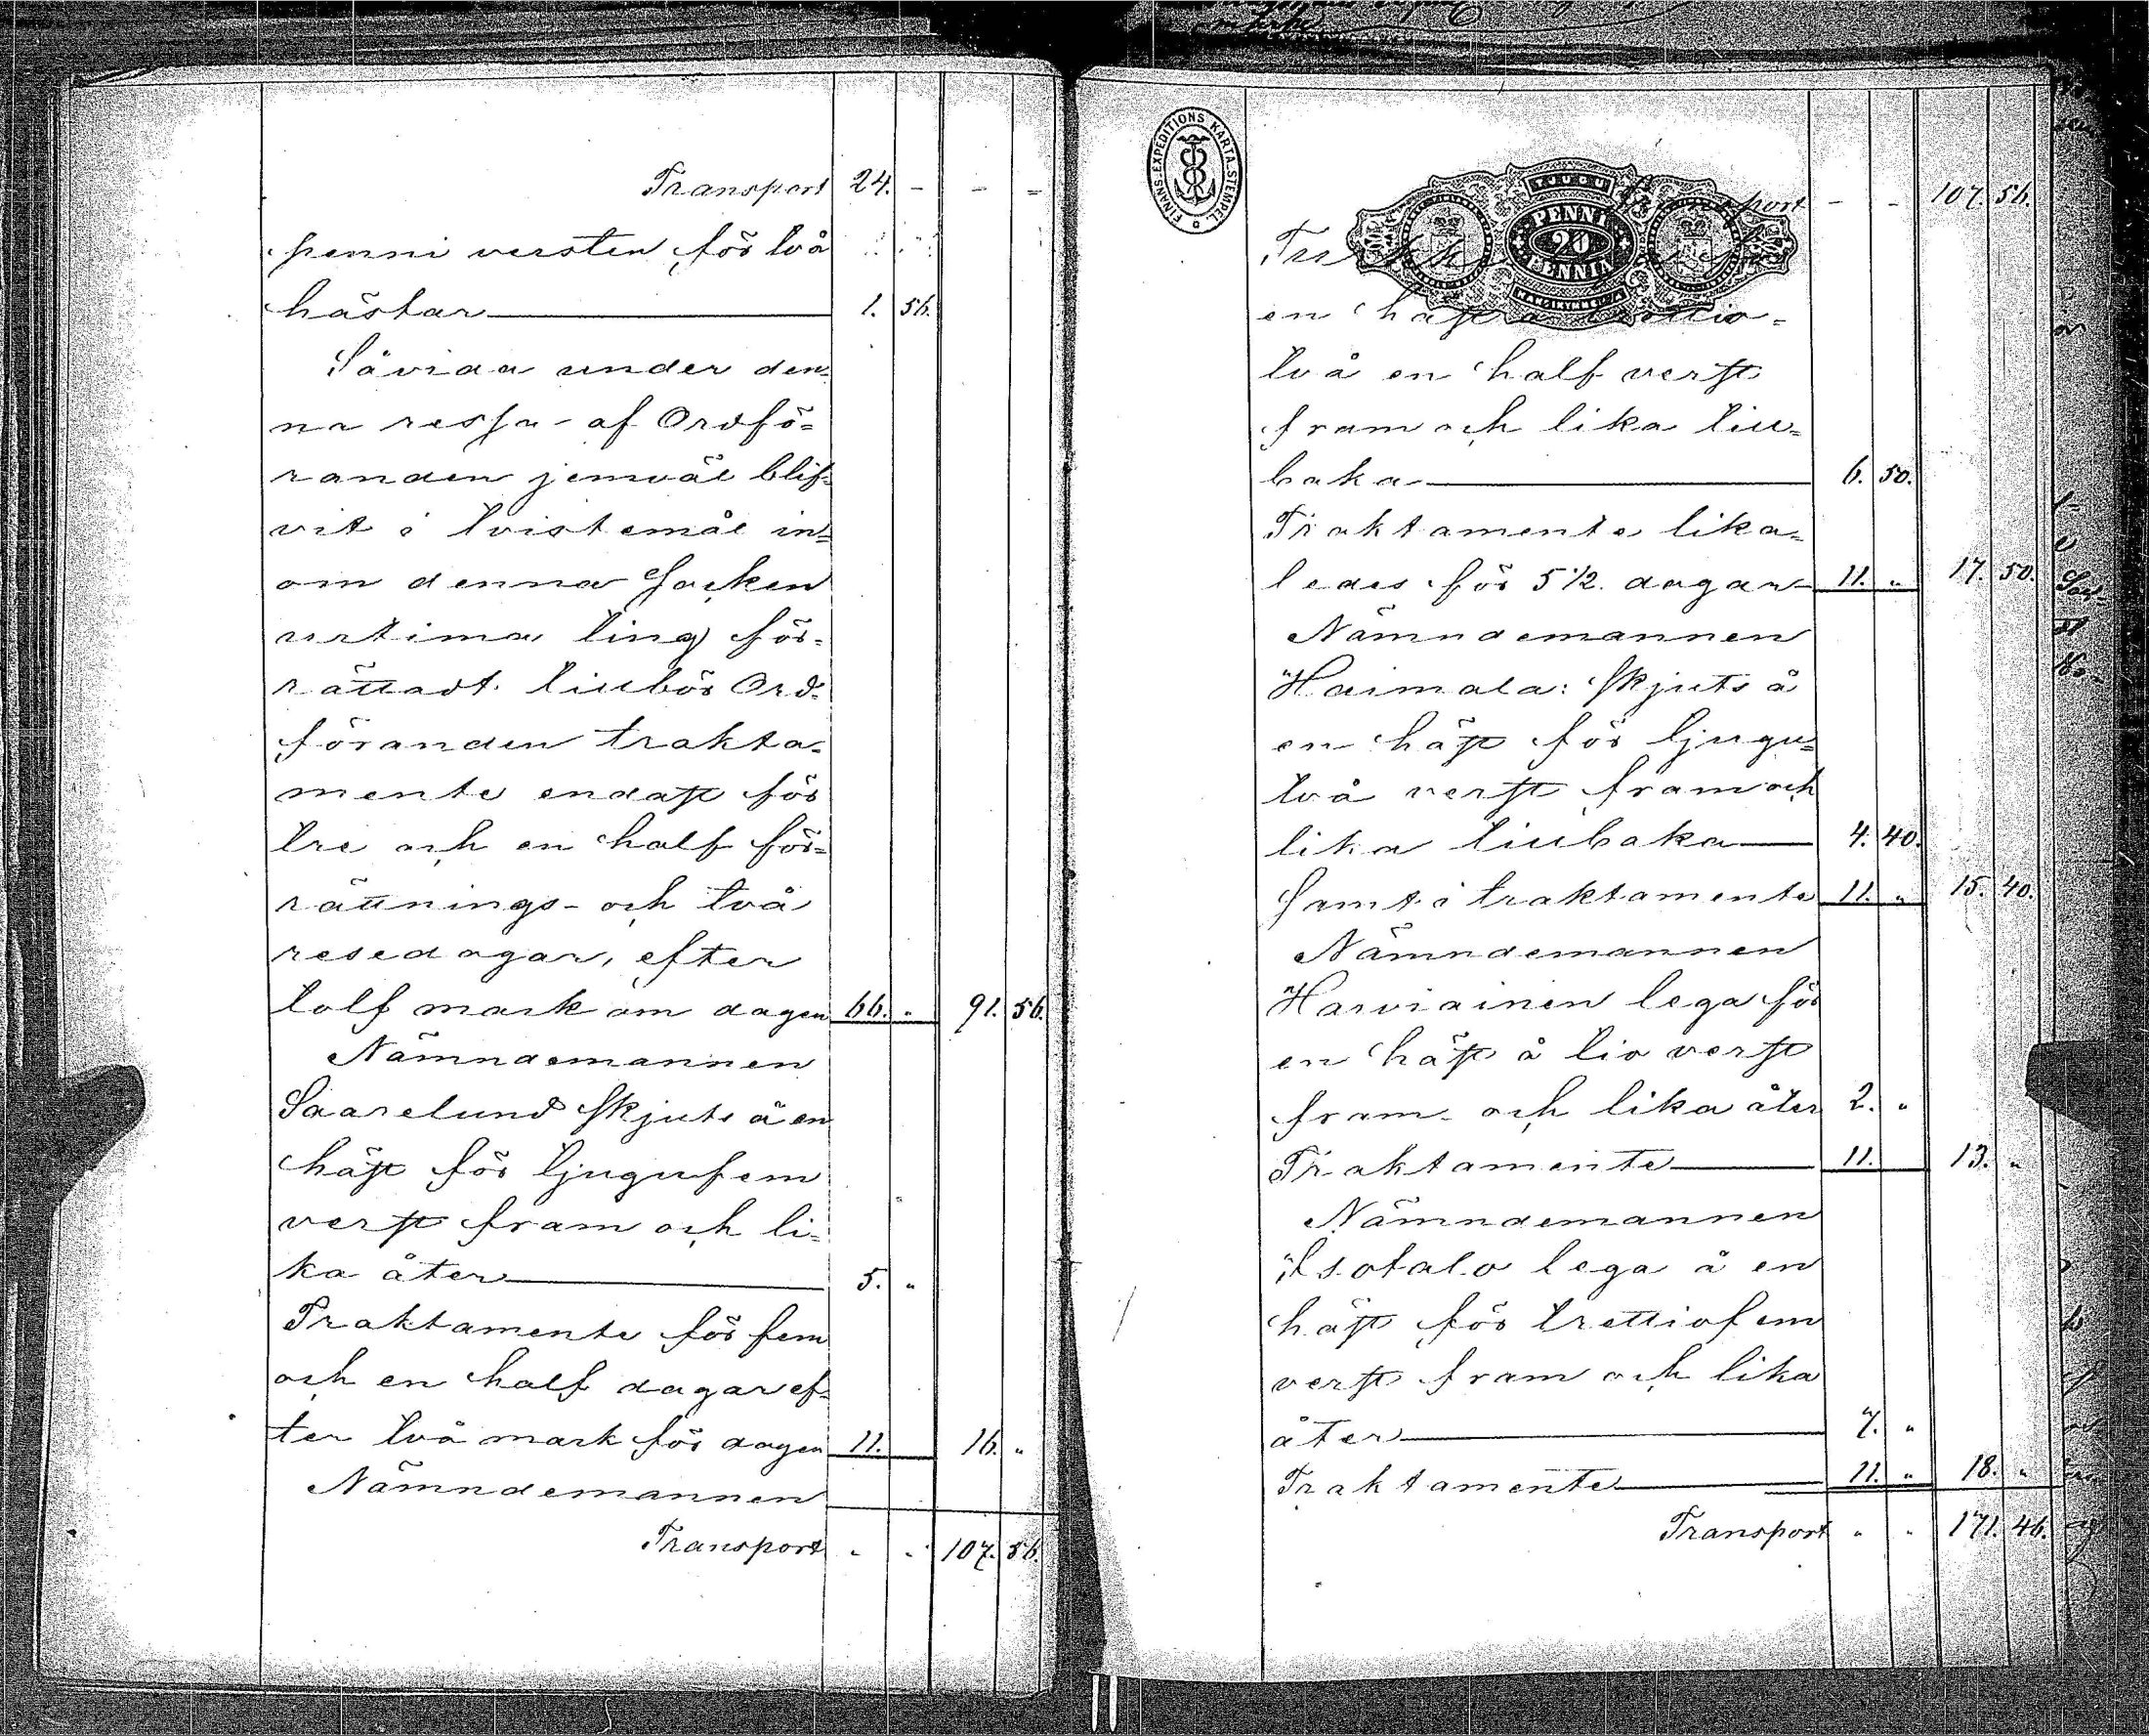 Transport 24. - - -
penni versten för två
hästar 1. 56.
Såvida under den-
na ressa af Ordfö=
randen jemväl blif=
vit i tvistemål in=
om denna Socken
urtima ting för=
rättadt. tillbör Ord=
föranden trakta=
mente endast för
tre och en half för=
rättnings- och två
resedagar, efter
tolf mark om dagen 66. " 91. 56.
Nämndemannen
Saarelund Skjuts å en
häst för tjugufem
verst fram och li=
ka åter 5. "
Traktamente för fem
och en half dagar ef=
ter två mark för dagen 11. 16. "
Nämndemannen
Transport " " 107. 56.
FINANS-EXPEDITIONS KARTA.STEMPEL.
PENNI
20
PENNIÄ
port - - 107. 56.
en häst å trettio=
två en half verst
fram och lika till=
baka 6. 50.
Traktamente lika=
ledes för 5 1/2. dagar 11. " 17. 50.
Nämndemannen
Haimala: Skjuts å
en häst för tjugu=
två verst fram och
lika tillbaka 4. 40.
Samt i traktamente 11. " 15. 40.
Nämndemannen
Harviainen lega för
en häst å tio verst
fram och lika åter 2. "
Traktamente 11. 13. "
Nämndemannen
Isotalo lega å en
häst för trettiofem
verst fram och lika
åter 7. "
Traktamente 11. " 18. "
Transport " " 171. 46.